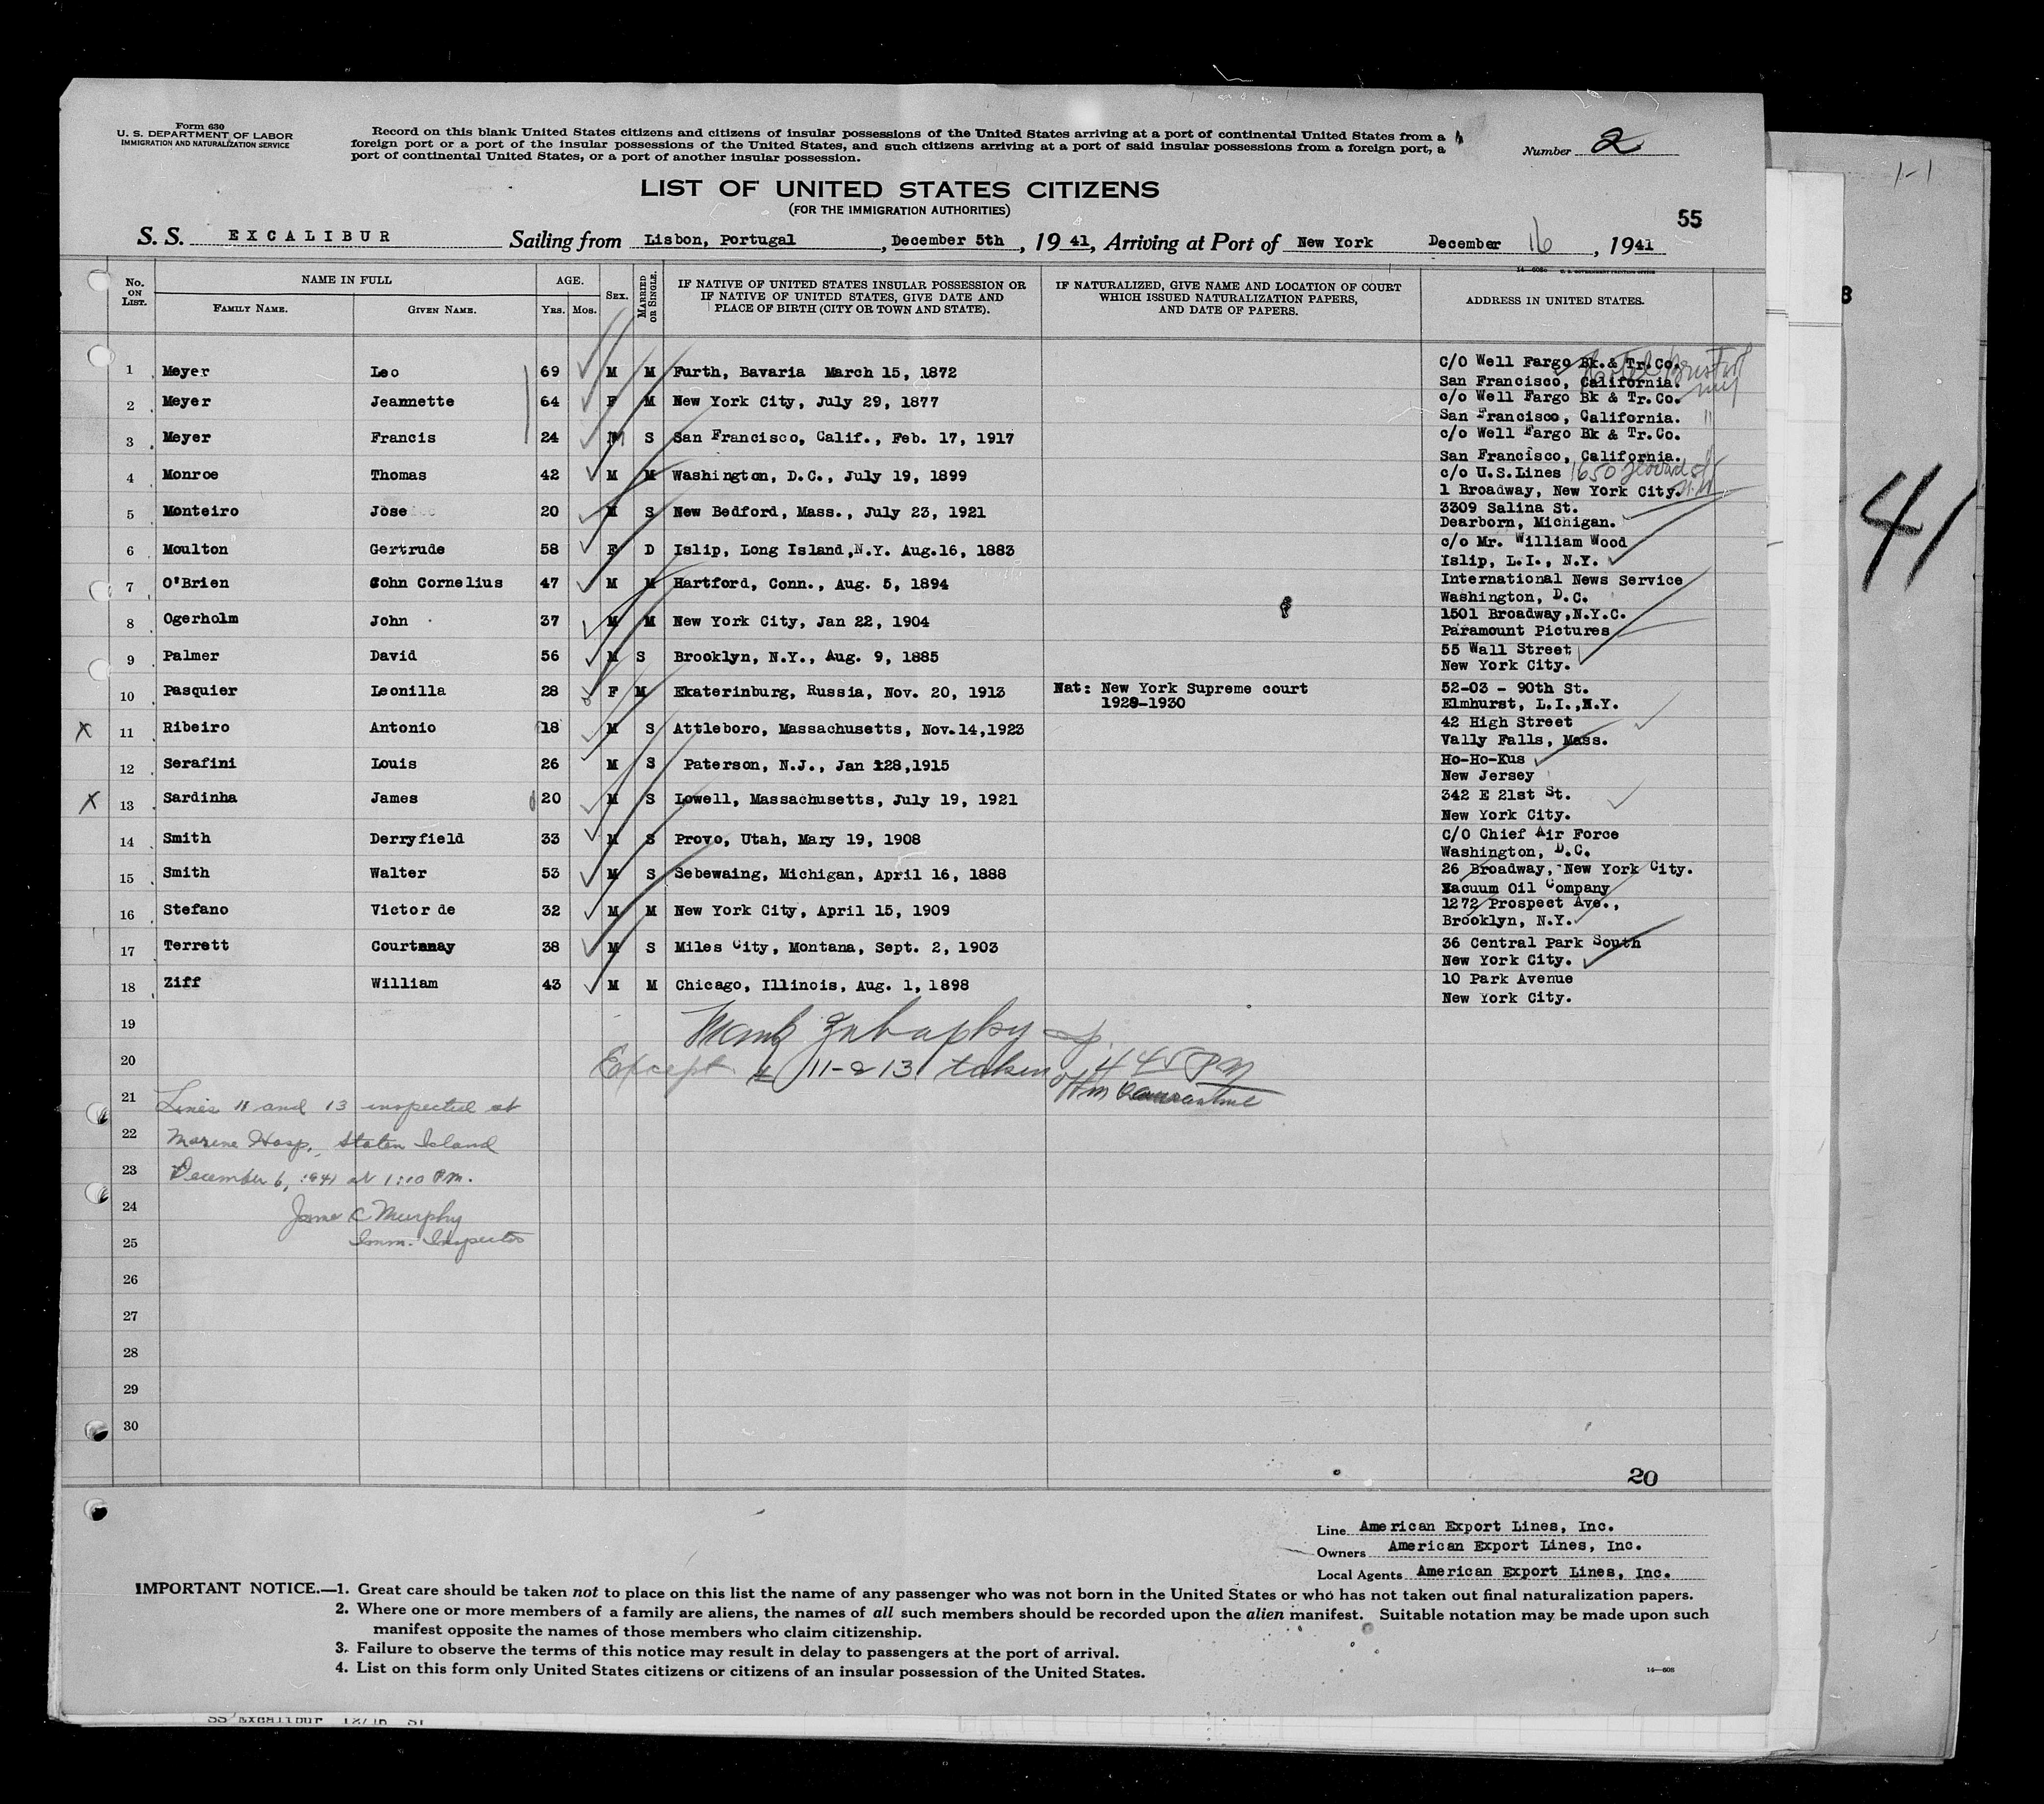 Form 630
U. S. DEPARTMENT OF LABOR
IMMIGRATION AND NATURALIZATION SERVICE
Record on this blank United States citizens and citizens of insular possessions of the United States arriving at a port of continental United States from a
foreign port or a port of the insular possessions of the United States, and such citizens arriving at a port of said insular possessions from a foreign port, a
port of continental United States, or a port of another insular possession.
Number 2
LIST OF UNITED STATES CITIZENS
(FOR THE IMMIGRATION AUTHORITIES)
55
S. S. EXCALIBUR Sailing from Lisbon, Portugal, December 5th, 1941, Arriving at Port of New York December 16, 1941
No. ON LIST. NAME IN FULL FAMILY NAME. GIVEN NAME. AGE. YRS. MOS. SEX. MARRIED OR SINGLE. IF NATIVE OF UNITED STATES INSULAR POSSESSION OR IF NATIVE OF UNITED STATES, GIVE DATE AND PLACE OF BIRTH (CITY OR TOWN AND STATE). IF NATURALIZED, GIVE NAME AND LOCATION OF COURT WHICH ISSUED NATURALIZATION PAPERS, AND DATE OF PAPERS. ADDRESS IN UNITED STATES.
1 Meyer Leo 69 M M Furth, Bavaria March 15, 1872 C/O Well Fargo Bk.& Tr.Co. Hotel Bristol
San Francisco, California.
2 Meyer Jeannette 64 F M New York City, July 29, 1877 c/o Well Fargo Bk & Tr.Co.
San Francisco, California. "
3 Meyer Francis 24 M S San Francisco, Calif., Feb. 17, 1917 c/o Well Fargo Bk & Tr.Co.
San Francisco, California.
4 Monroe Thomas 42 M M Washington, D.C., July 19, 1899 c/o U.S.Lines 1650
1 Broadway, New York City.
5 Monteiro Jose 20 M S New Bedford, Mass., July 23, 1921 3309 Salina St.
Dearborn, Michigan.
6 Moulton Gertrude 58 F D Islip, Long Island,N.Y. Aug.16, 1883 c/o Mr. William Wood
Islip, L.I., N.Y.
7 O'Brien John Cornelius 47 M M Hartford, Conn., Aug. 5, 1894 International News Service
Washington, D.C.
8 Ogerholm John 37 M M New York City, Jan 22, 1904 1501 Broadway,N.Y.C.
Paramount Pictures
9 Palmer David 56 M S Brooklyn, N.Y., Aug. 9, 1885 55 Wall Street
New York City.
10 Pasquier Leonilla 28 F M Ekaterinburg, Russia, Nov. 20, 1913 Nat: New York Supreme court 52-03 - 90th St.
1929-1930 Elmhurst, L.I.,N.Y.
X 11 Ribeiro Antonio 18 M S Attleboro, Massachusetts, Nov.14,1923 42 High Street
Vally Falls, Mass.
12 Serafini Louis 26 M S Paterson, N.J., Jan 28,1915 Ho-Ho-Kus
New Jersey
X 13 Sardinha James 20 M S Lowell, Massachusetts, July 19, 1921 342 E 21st St.
New York City.
14 Smith Derryfield 33 M S Provo, Utah, Mary 19, 1908 C/O Chief Air Force
Washington, D.C.
15 Smith Walter 53 M S Sebewaing, Michigan, April 16, 1888 26 Broadway, New York City.
Vacuum Oil Company
16 Stefano Victor de 32 M M New York City, April 15, 1909 1272 Prospect Ave.,
Brooklyn, N.Y.
17 Terrett Courtenay 38 M S Miles City, Montana, Sept. 2, 1903 36 Central Park South
New York City.
18 Ziff William 43 M M Chicago, Illinois, Aug. 1, 1898 10 Park Avenue
New York City.
19
20 Except 11-&13 taken 4 45 PM
off in Quarantine
21 Lines 11 and 13 inspected at
22 Marine Hosp., Staten Island
23 December 6, 1941 at 1:10 P.M.
24 James C Murphy
25 Imm. Inspector
26
27
28
29
30
20
Line American Export Lines, Inc.
Owners American Export Lines, Inc.
Local Agents American Export Lines, Inc.
IMPORTANT NOTICE.—1. Great care should be taken not to place on this list the name of any passenger who was not born in the United States or who has not taken out final naturalization papers.
2. Where one or more members of a family are aliens, the names of all such members should be recorded upon the alien manifest. Suitable notation may be made upon such
manifest opposite the names of those members who claim citizenship.
3. Failure to observe the terms of this notice may result in delay to passengers at the port of arrival.
4. List on this form only United States citizens or citizens of an insular possession of the United States.
14—608
41
1-1